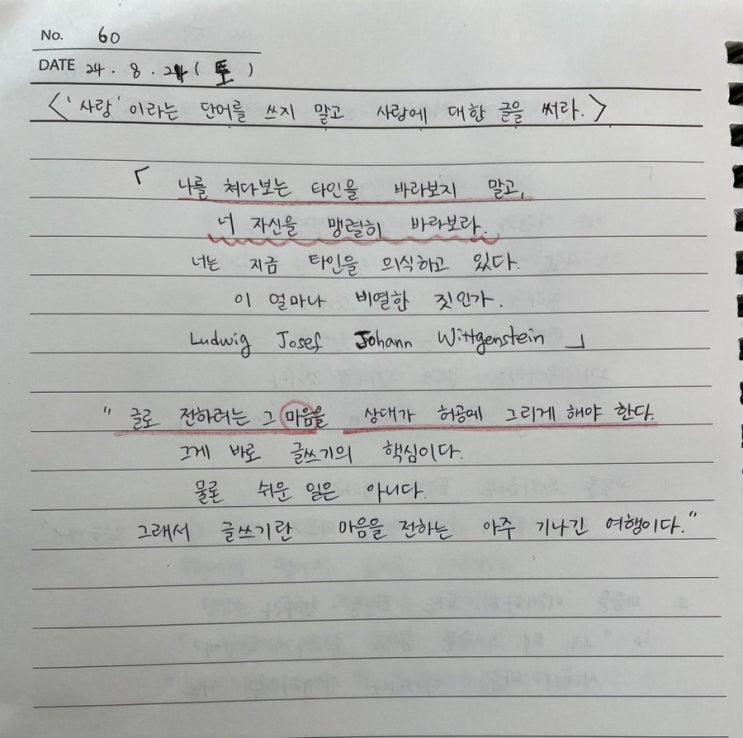 No. 60
DATE 24. 8. 24 (토)
<'사랑'이라는 단어를 쓰지 말고 사랑에 대한 글을 써라.>
「 나를 쳐다보는 타인을 바라보지 말고,
너 자신을 맹렬히 바라보라.
너는 지금 타인을 의식하고 있다.
이 얼마나 비열한 짓인가.
Ludwig Josef Johann Wittgenstein 」
"글로 전하려는 그 마음을 상대가 허공에 그리게 해야 한다.
그게 바로 글쓰기의 핵심이다.
물론 쉬운 일은 아니다.
그래서 글쓰기란 마음을 전하는 아주 기나긴 여행이다."